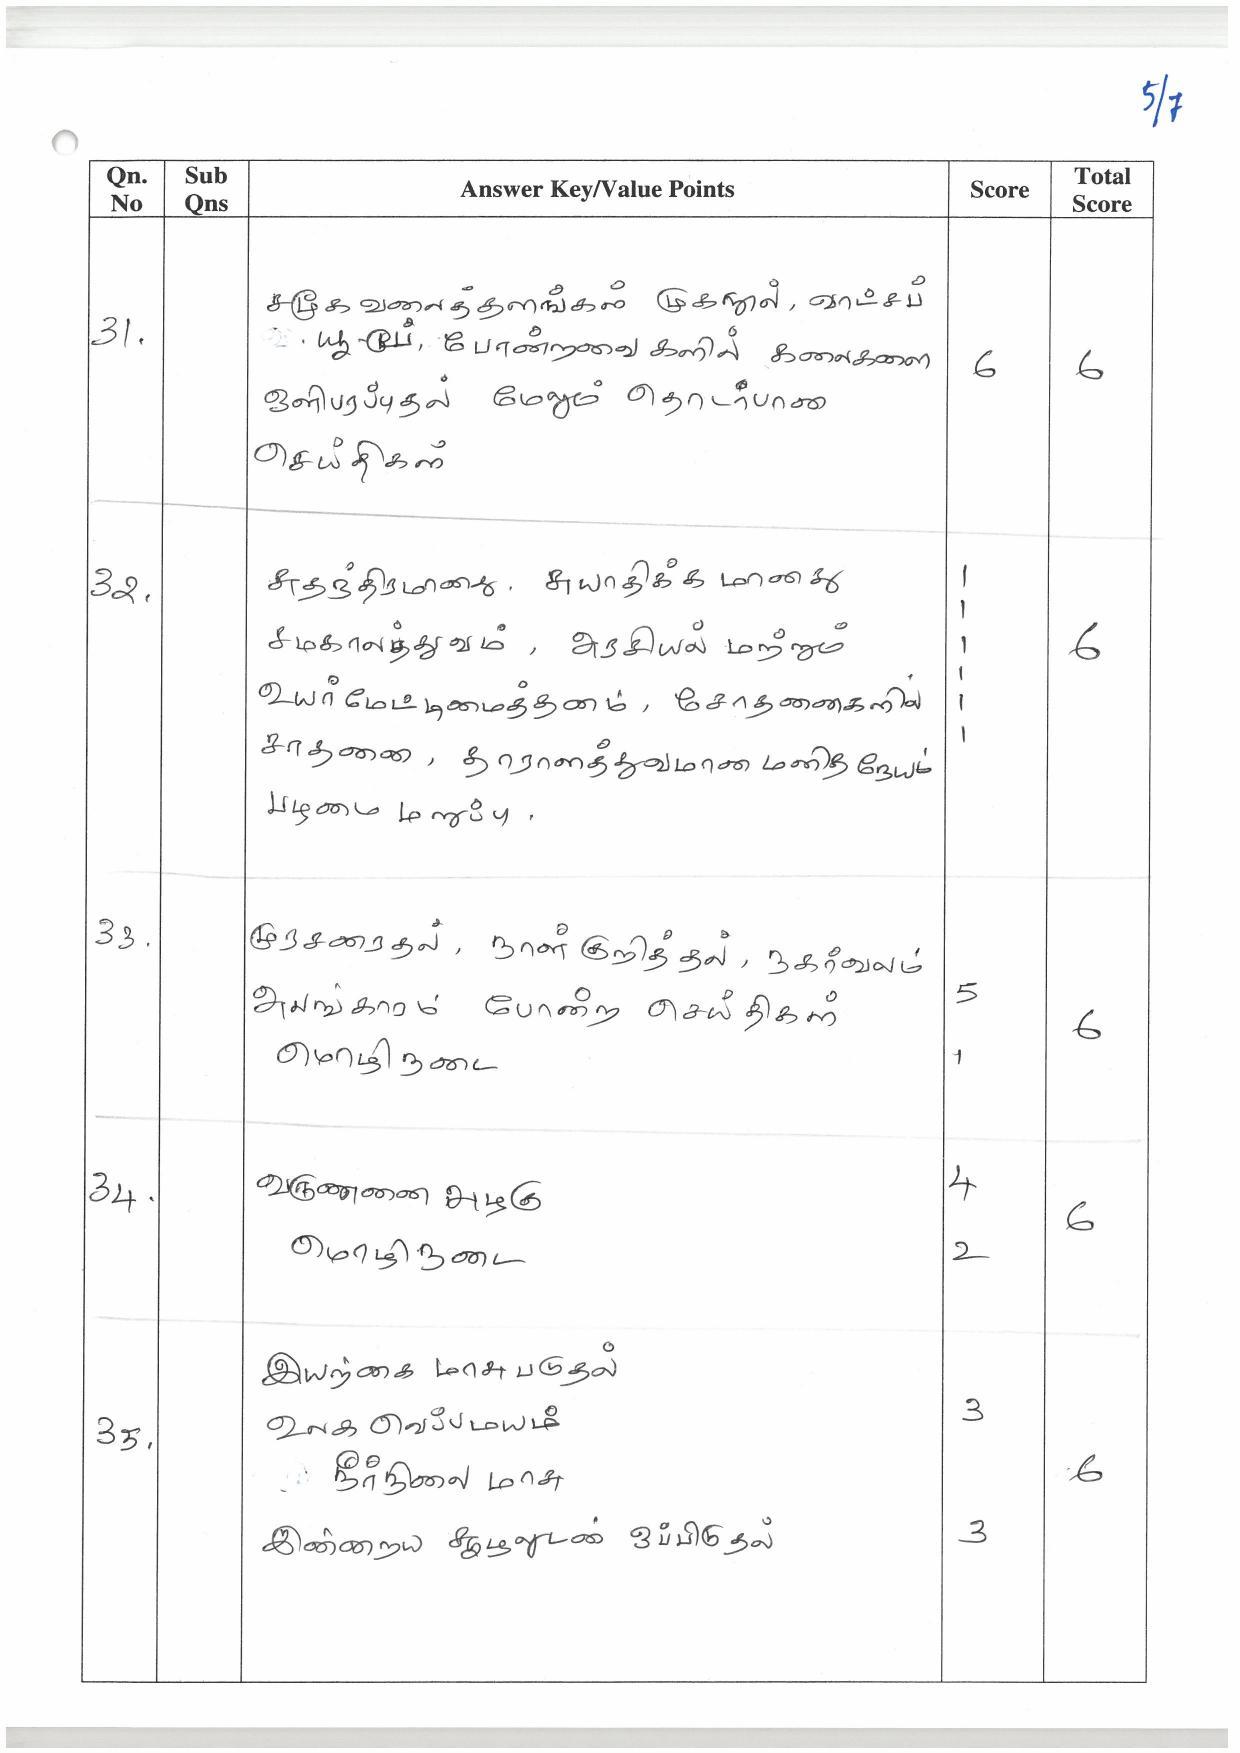 5/7
Qn. No Sub Qns Answer Key/Value Points Score Total Score
சமூக வலைத்தளங்கள் முகநூல், வாட்சப்
31. யூ-டீப், போன்றவை களில் கலைகளை 6 6
ஒளிபரப்புதல் மேலும் தொடர்பான
செய்திகள்
32. சுதந்திரமானது. சுயாதிக்க மானது 1
1
சமகாலத்துவம், அரசியல் மற்றும் 1 6
1
உயர்மேட்டிமைத்தனம், சோதனைகளில் 1
சாதனை, தாராளத்துவமான மனித நேயம் 1
படிமை மறுப்பு.
33. முரசறைதல், நாள் குறித்தல், நகர்வலம்
அலங்காரம் போன்ற செய்திகள் 5 6
மொழிநடை 1
34. வருணனை அழகு 4 6
மொழிநடை 2
இயற்கை மாசுபடுதல்
35. உலக வெப்பமயம் 3
நீர்நிலை மாசு 6
இன்றைய சூழலுடன் ஒப்பிடுதல் 3